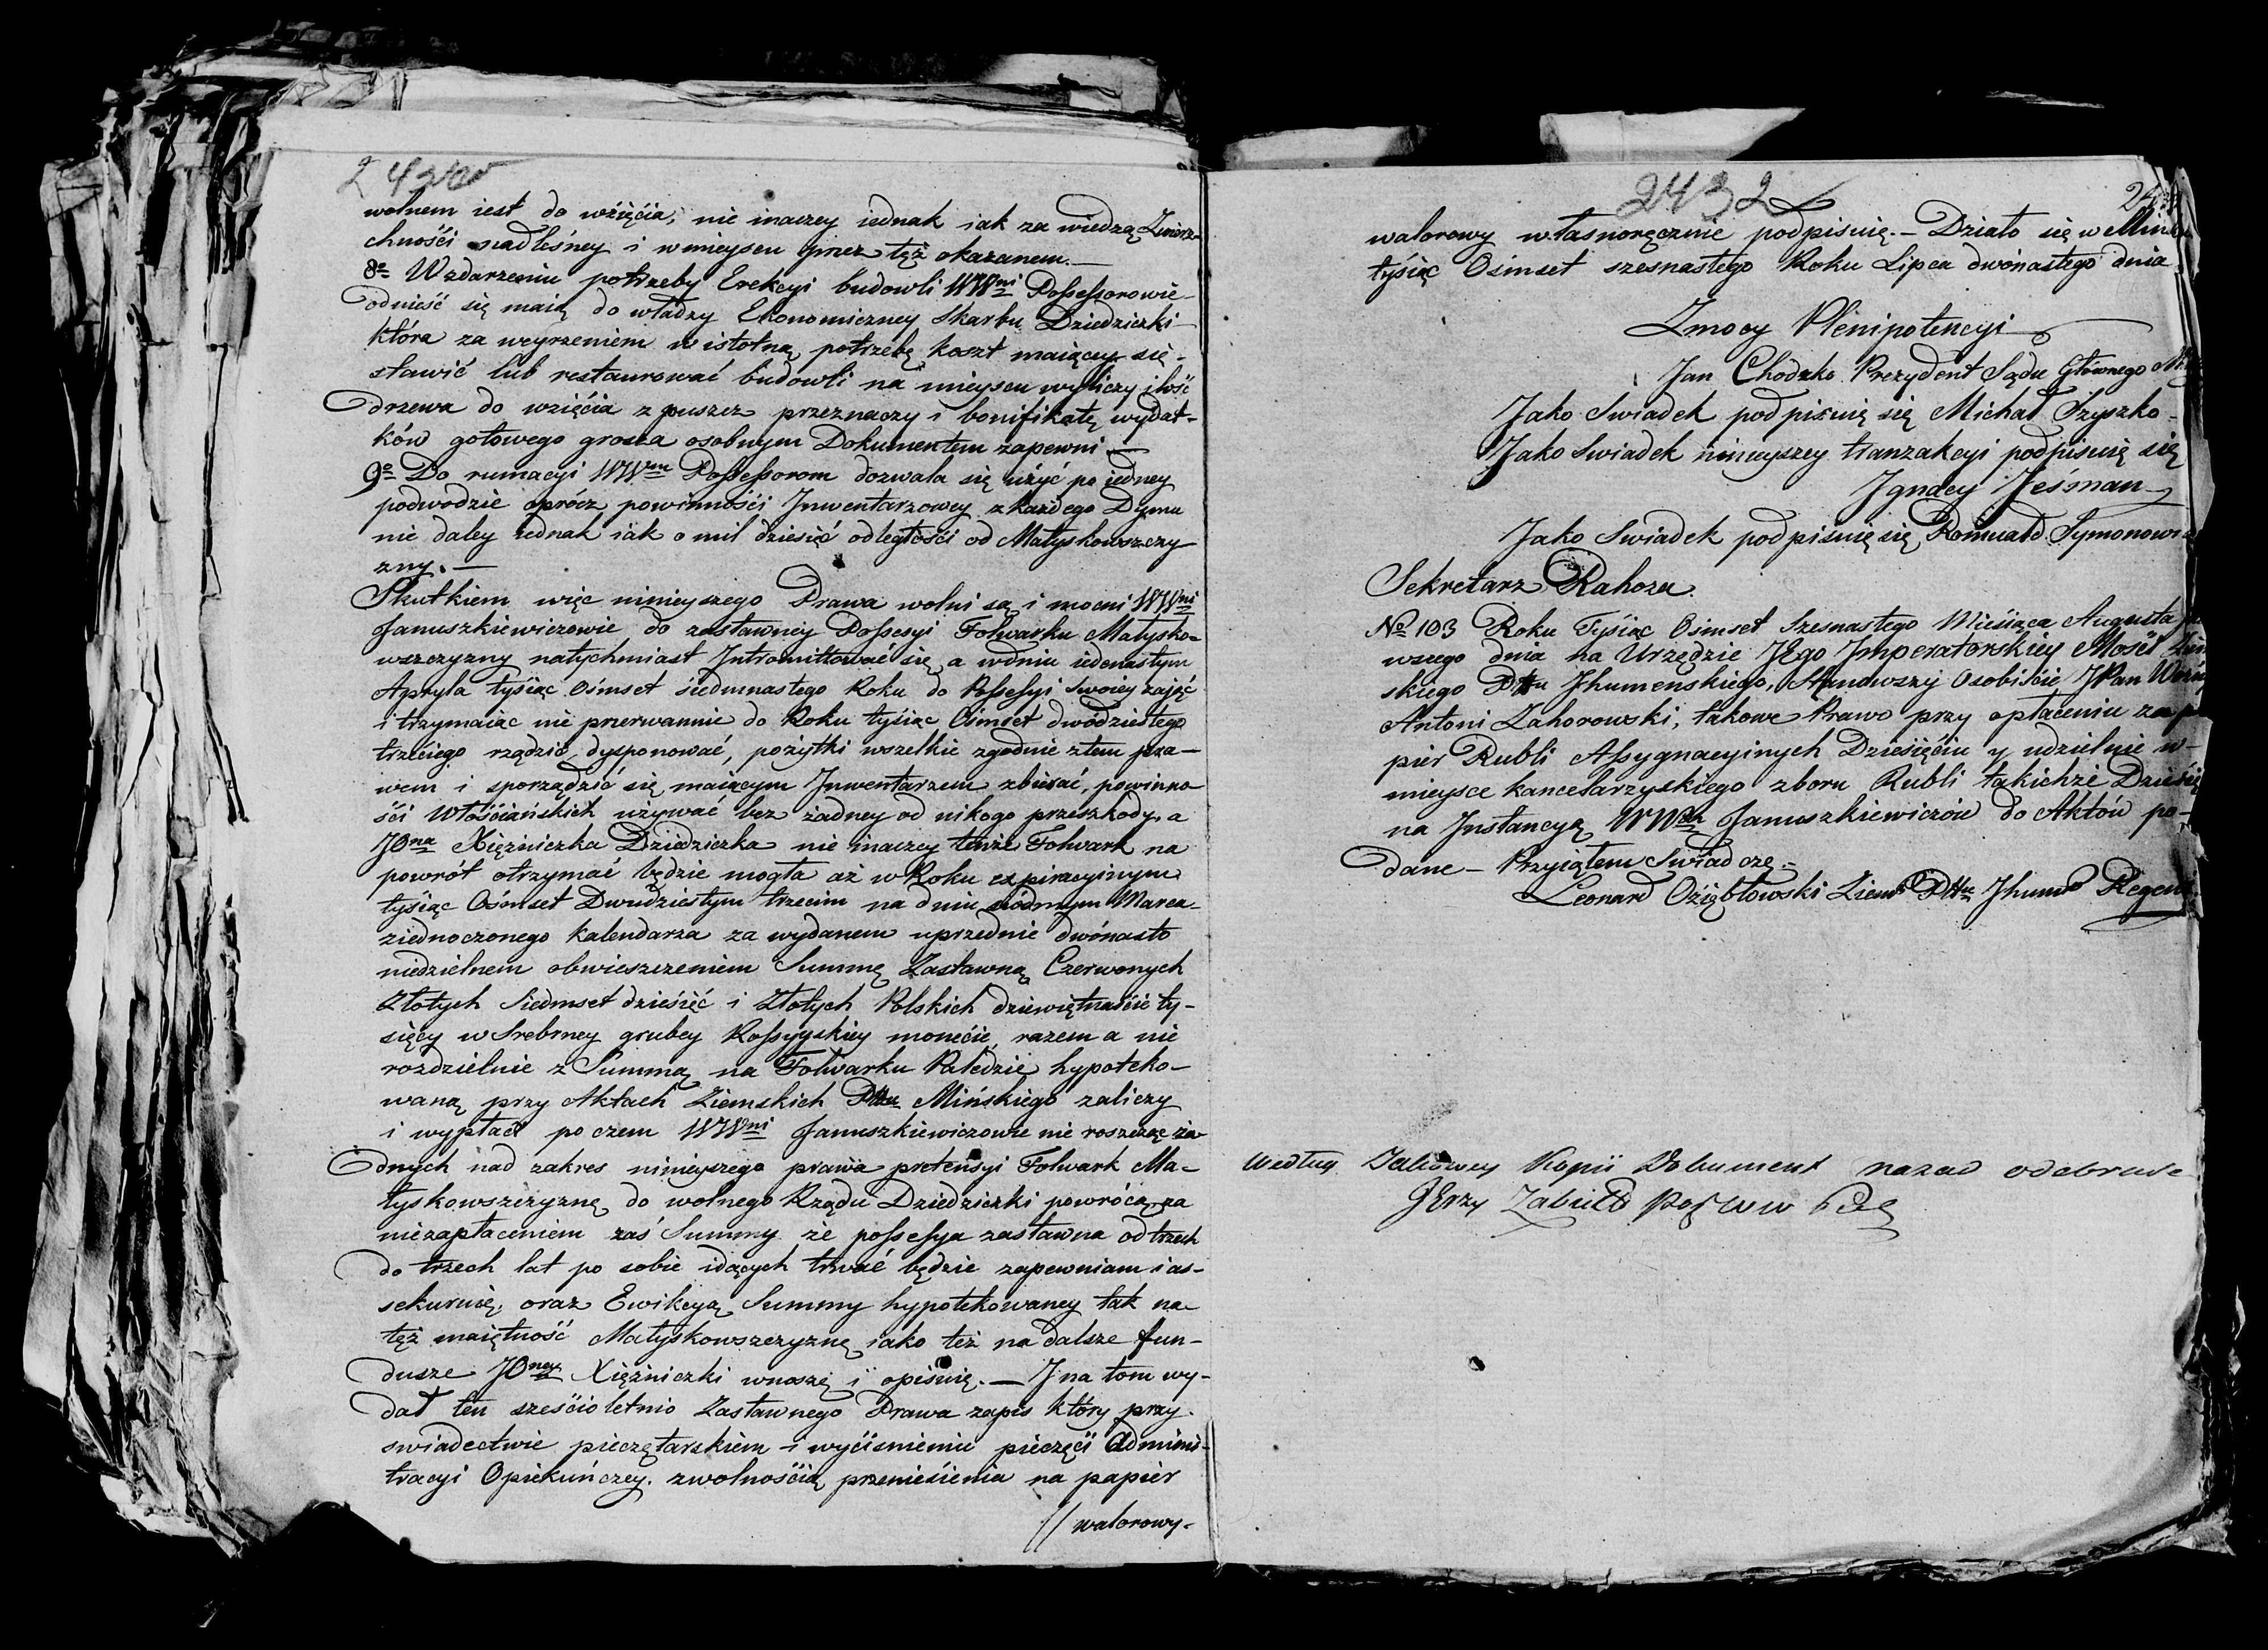 wolnem iest do wzięćia, nie inaczey iednak iak za wiedzą Zwierz-
chnośći nadleśney i w mieyscu przez tęż okazanem.—
8o Wzdarzeniu potrzeby Erekcyi budowli WWni Possessorowie
odnieść się maią do władzy Ekonomiczney Skarbu Dziedziczki
która za weyrzeniem w istotną potrzebę koszt maiący się
stawić lub restaurować budowli na mieyscu wyliczy ilość
drzewa do wzięćia z puszcz przeznaczy i bonifikatę wydat-
ków gotowego grosza osobnym Dokumentem zapewni —
9o Do rumacyi WWm Possessorom dozwala się użyć po iedney
podwodzie oprócz powinnośći Inwentarzowey z każdego Dymu
nie daley iednak iak o mil dziesięć odległośći od Matyskowszczy
zny.—
Skutkiem więc ninieyszego Prawa wolni są i mocni WWni
Januszkiewiczowie do zastawney Possesyi Folwarku Matysko-
wszczyzny natychmiast Intromittować się, a w dniu iedenastym
Apryla tysiąc Ośmset siedmnastego Roku do Possesyi swoiey zająć
i trzymaiąc nie przerwannie do Roku tysiąc Ośmset dwódziestego
trzećiego rządzić, dysponować, pożytki wszelkie zgodnie z tem pra-
wem i sporządzić się maiącym Inwentarzem zbierać, powinno
śći Włośćiańskich używać bez żadney od nikogo przeszkody, a
JOna Xiężniczka Dziedziczka nie inaczey tenże Folwark na
powrót otrzymać będzie mogła aż w Roku expiracyinym
tysiąc Ośmset Dwudziestym trzecim na dniu siódmym Marca
ziednoczonego kalendarza za wydanem uprzednie dwónasto
niedzielnem obwieszczeniem Summę Zastawną Czerwonych
Złotych Siedmset dzieśięć i Złotych Polskich dziewiętnaśćie ty-
sięcy w Srebrney grubey Rossyyskiey monećie, razem a nie
rozdzielnie z Summą na Folwarku Paledzie hypoteko-
waną przy Aktach Ziemskich Pttu Mińskiego zaliczy
i wypłaci po czem WWni Januszkiewiczowie nie roszcząc ża-
dnych nad zakres ninieyszego prawa pretensyi Folwark Ma-
tyskowszczyznę do wolnego Rządu Dziedziczki powrócą, za
niezapłaceniem zaś Summy że possesya zastawna od trzech
do trzech lat po sobie idących trwać będzie zapewniam i as-
sekuruię, oraz Ewikcyą Summy hypotekowaney tak na
tęż maiętność Matyskowszczyznę iako też na dalsze fun-
dusze JOney Xiężniczki wnoszę i opisuię.— I na tom wy-
dał ten sześćioletnio Zastawnego Prawa zapis który przy
swiadectwie pieczętarskiem i wyćisnieniu pieczęći Adminis-
tracyi Opiekuńczey z wolnośćią przenieśienia na papier
// walorowy.
2432
walorowy własnoręcznie podpisuię.— Działo się w
tysiąc Ośmset szesnastego Roku Lipca dwónastego dnia
Zmocy Plenipotencyi
Jan Chodzko Prezydent Sądu Głównego
Jako Swiadek podpisuię się Michał Szyszko
Jako Swiadek ninieyszey tranzakcyi podpisuię się
Ignacy Jeśman
Jako Swiadek podpisuię się Romuald
Sekretarz Rahoza.
No 103 Roku Tysiąc Ośmset Szesnastego Mieśiąca Augusta
wszego dnia na Urzędzie JEgo Imperatorskiey Mośći
skiego Pttu Ihumenskiego, Stanąwszy Osobiśćie JPan
Antoni Zahorowski, takowe Prawo przy opłaceniu za pa
pier Rubli Assygnacyinych Dzieśięćiu y udzielnie w-
mieysce kancelarzyskiego zboru Rubli takichże Dzieśię
na Instancyą WWch Januszkiewiczów do Aktów po-
dane – Przyiąłem Swiadczę –
Leonard Oziębłowski Ziem Pttu Ihum Regent
według Kopii Dokument nazad odebrałe
JErzy